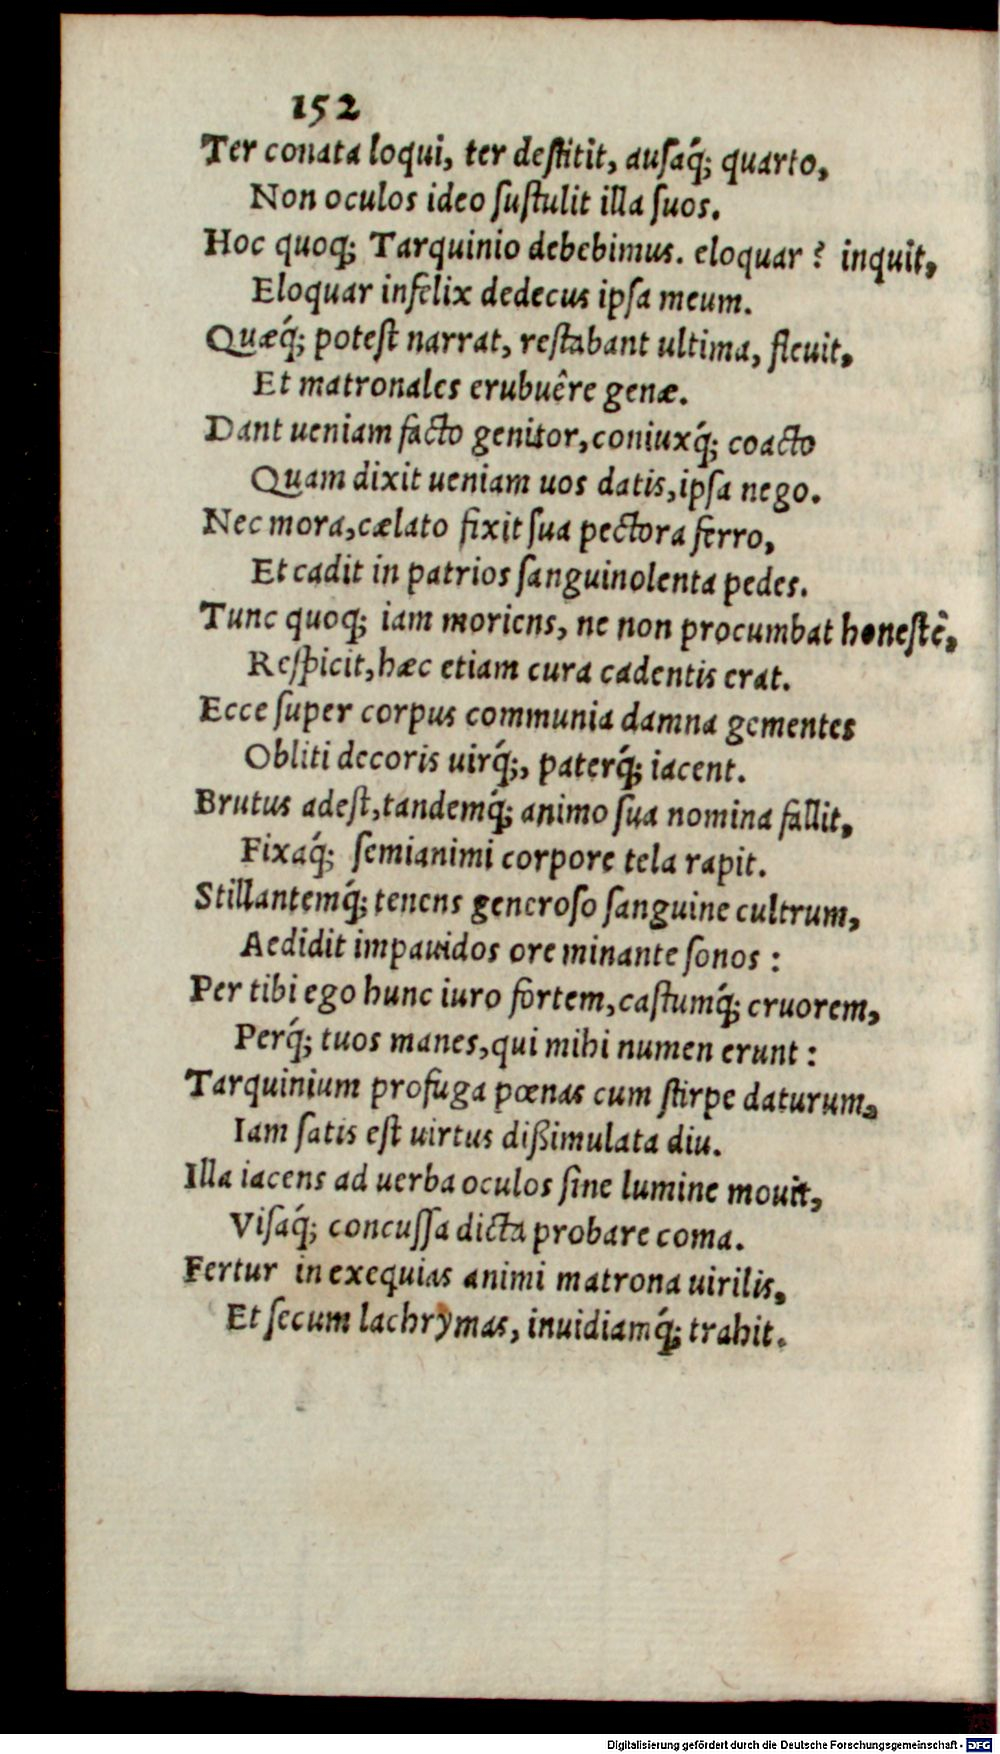 152
Ter conata loqui, ter destitit, ausaq́; quarto,
Non oculos ideo sustulit illa suos.
Hoc quoq; Tarquinio debebimus. eloquar? inquit,
Eloquar infelix dedecus ipsa meum.
Quæq́; potest narrat, restabant ultima, fleuit,
Et matronales erubuêre genæ.
Dant ueniam facto genitor, coniuxq́; coacto
Quam dixit ueniam uos datis, ipsa nego.
Nec mora, cælato fixit sua pectora ferro,
Et cadit in patrios sanguinolenta pedes.
Tunc quoq; iam moriens, ne non procumbat honestè,
Respicit, hæc etiam cura cadentis erat.
Ecce super corpus communia damna gementes
Obliti decoris uirq́;, paterq́; iacent.
Brutus adest, tandemq́; animo sua nomina fallit,
Fixaq́; semianimi corpore tela rapit.
Stillantemq́; tenens generoso sanguine cultrum,
Aedidit impauidos ore minante sonos:
Per tibi ego hunc iuro fortem, castumq́; cruorem,
Perq́; tuos manes, qui mihi numen erunt:
Tarquinium profuga pœnas cum stirpe daturum,
Iam satis est uirtus dißimulata diu.
Illa iacens ad uerba oculos sine lumine mouit,
Visaq́; concussa dicta probare coma.
Fertur in exequias animi matrona uirilis,
Et secum lachrymas, inuidiamq́; trahit.
Digitalisierung gefördert durch die Deutsche Forschungsgemeinschaft - DFG